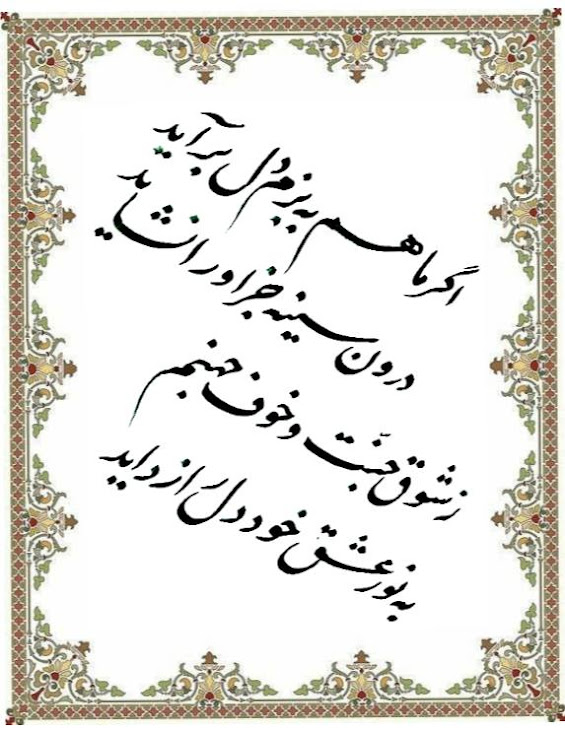 اگر ماهم به بزم دل برآید
درون سینه جز او را نشاید
ز شوق جنّت و خوف جهنم
به نور عشق خود دل را زداید